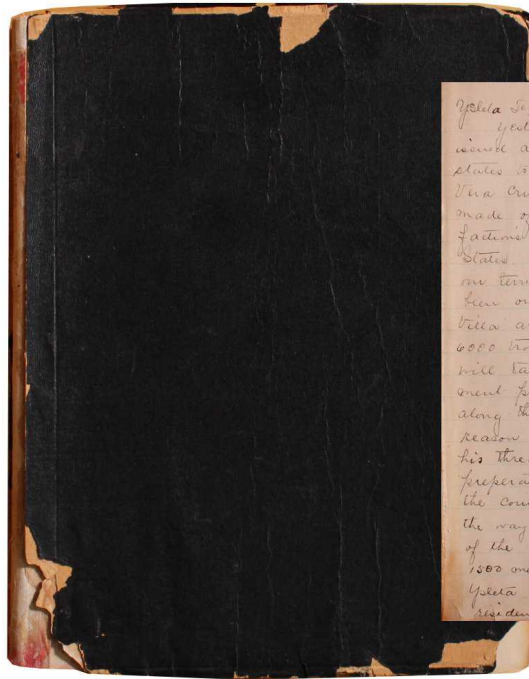 Ysleta Te
Yest
issued a
states to
Vera Cru
made o
factions
States.
our terri
been or
Villa a
6000 tro
will ta
ment p
along th
reason
his thre
prepera
the cou
the way
of the
1500 me
Ysleta
residen